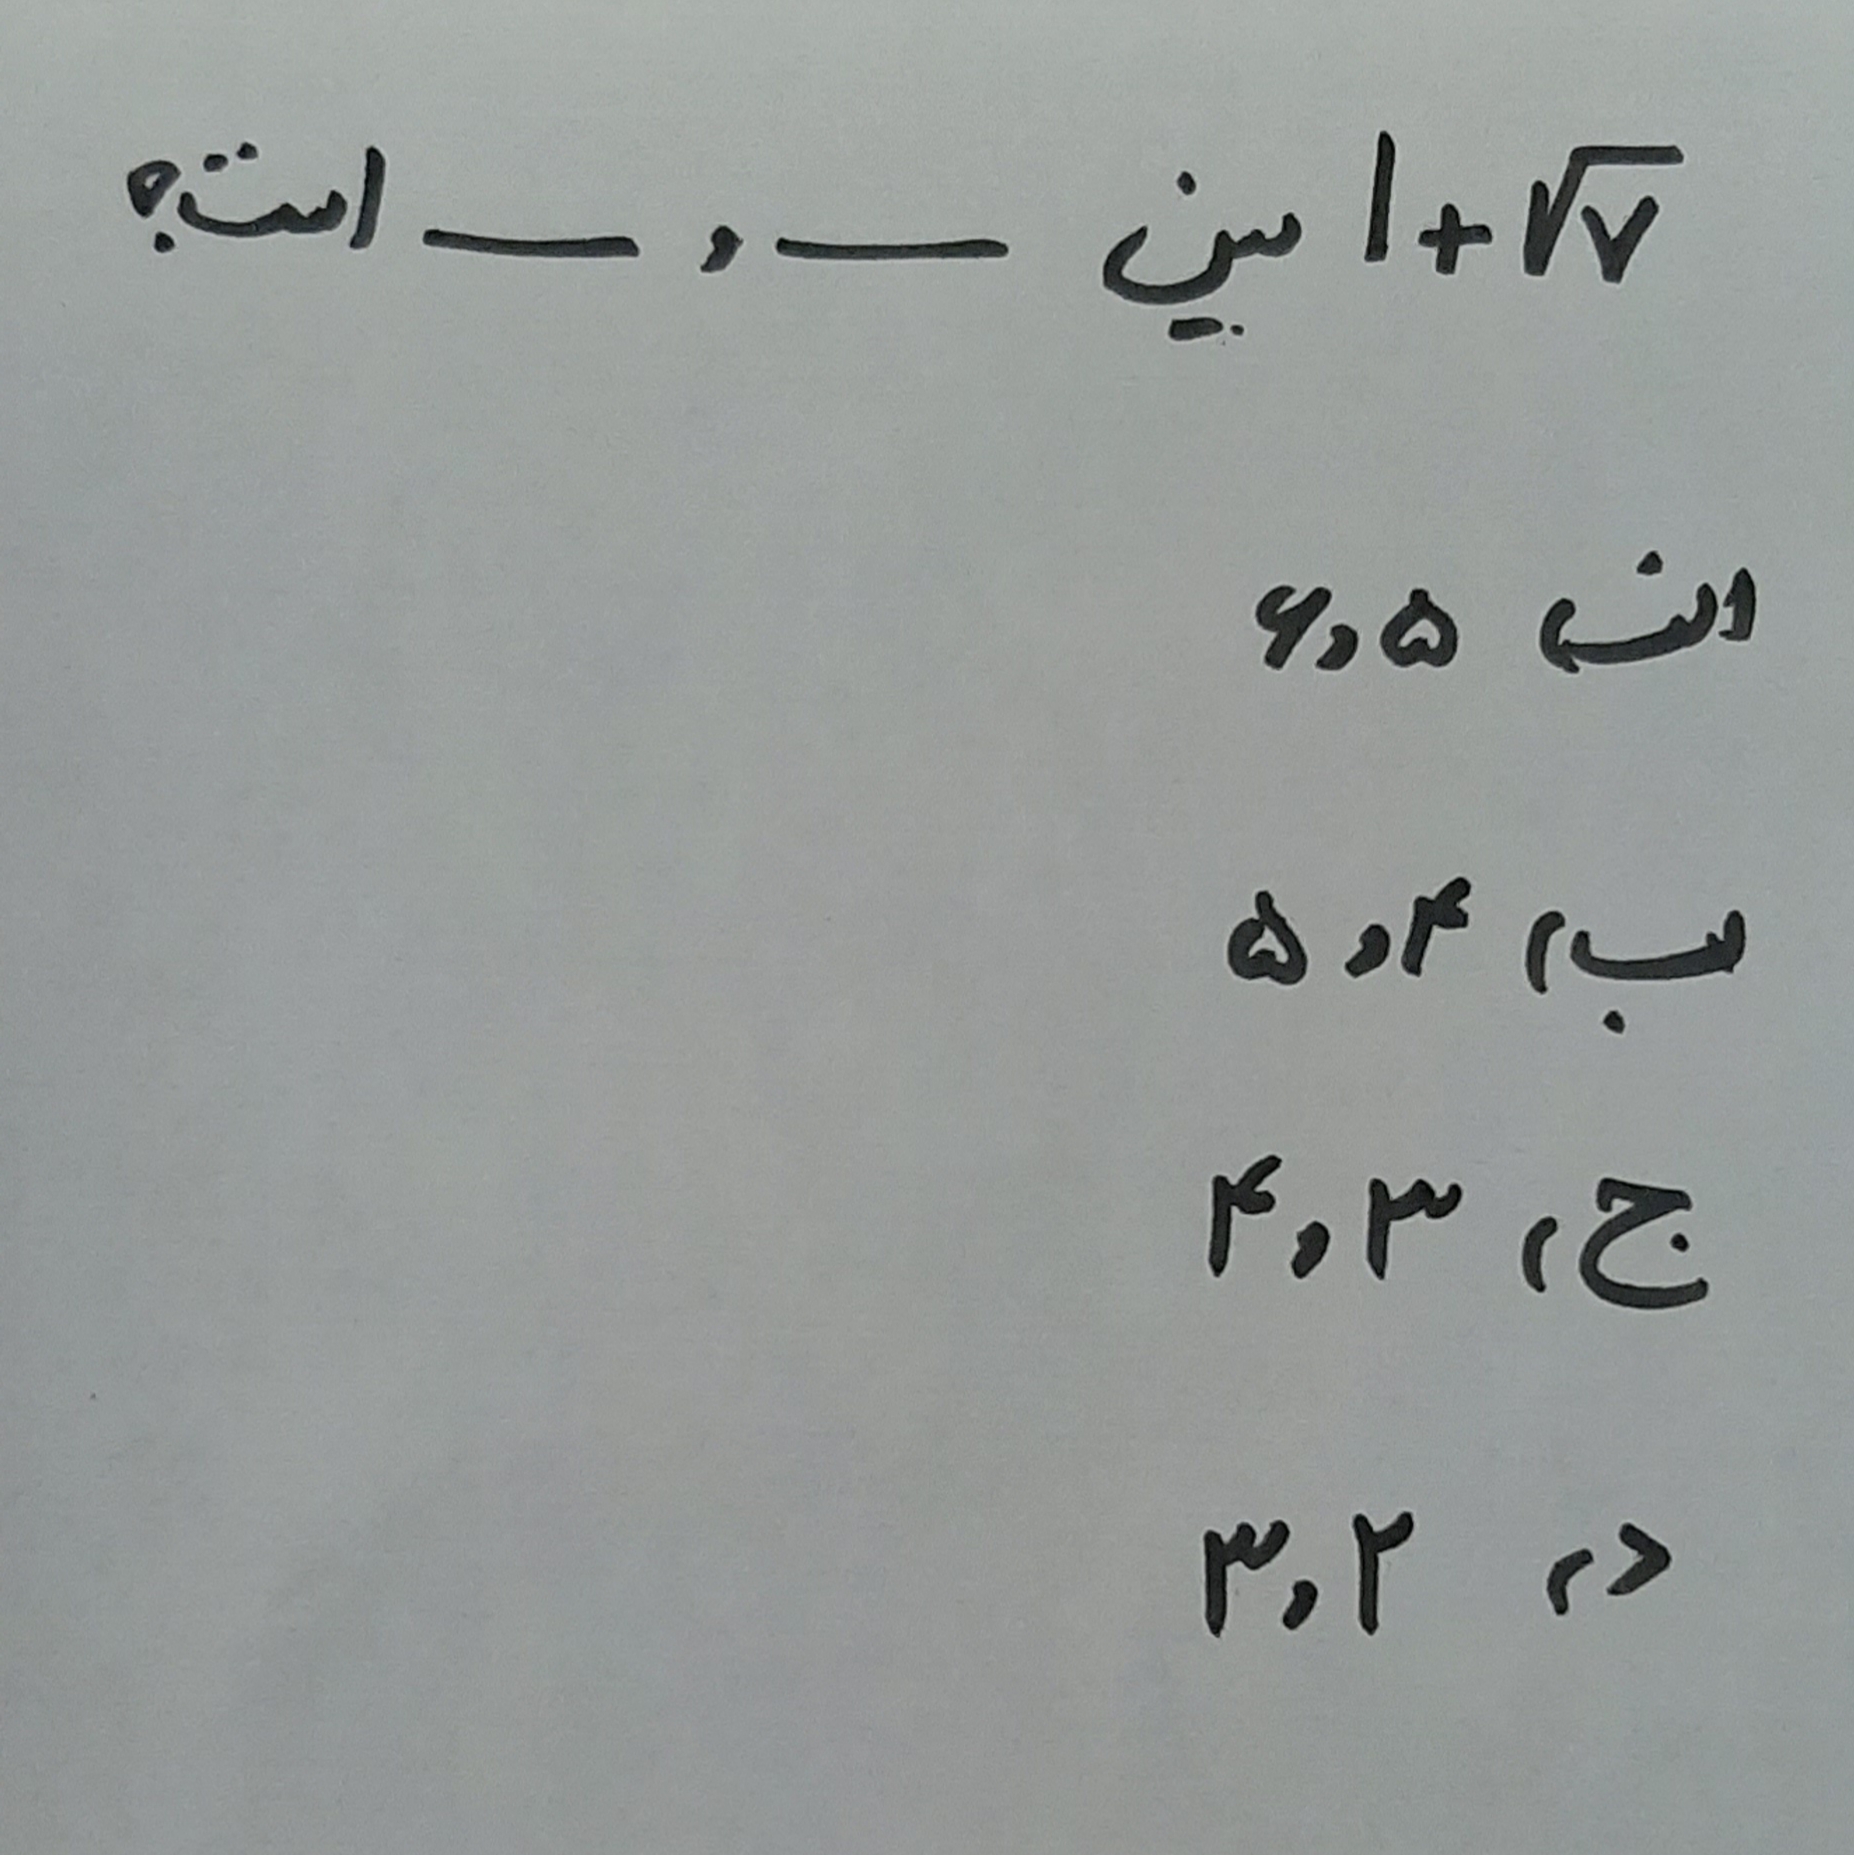 ۱+√۷ بین ___ و ___ است؟
الف) ۵ و ۶
ب) ۴ و ۵
ج) ۳ و ۴
د) ۲ و ۳